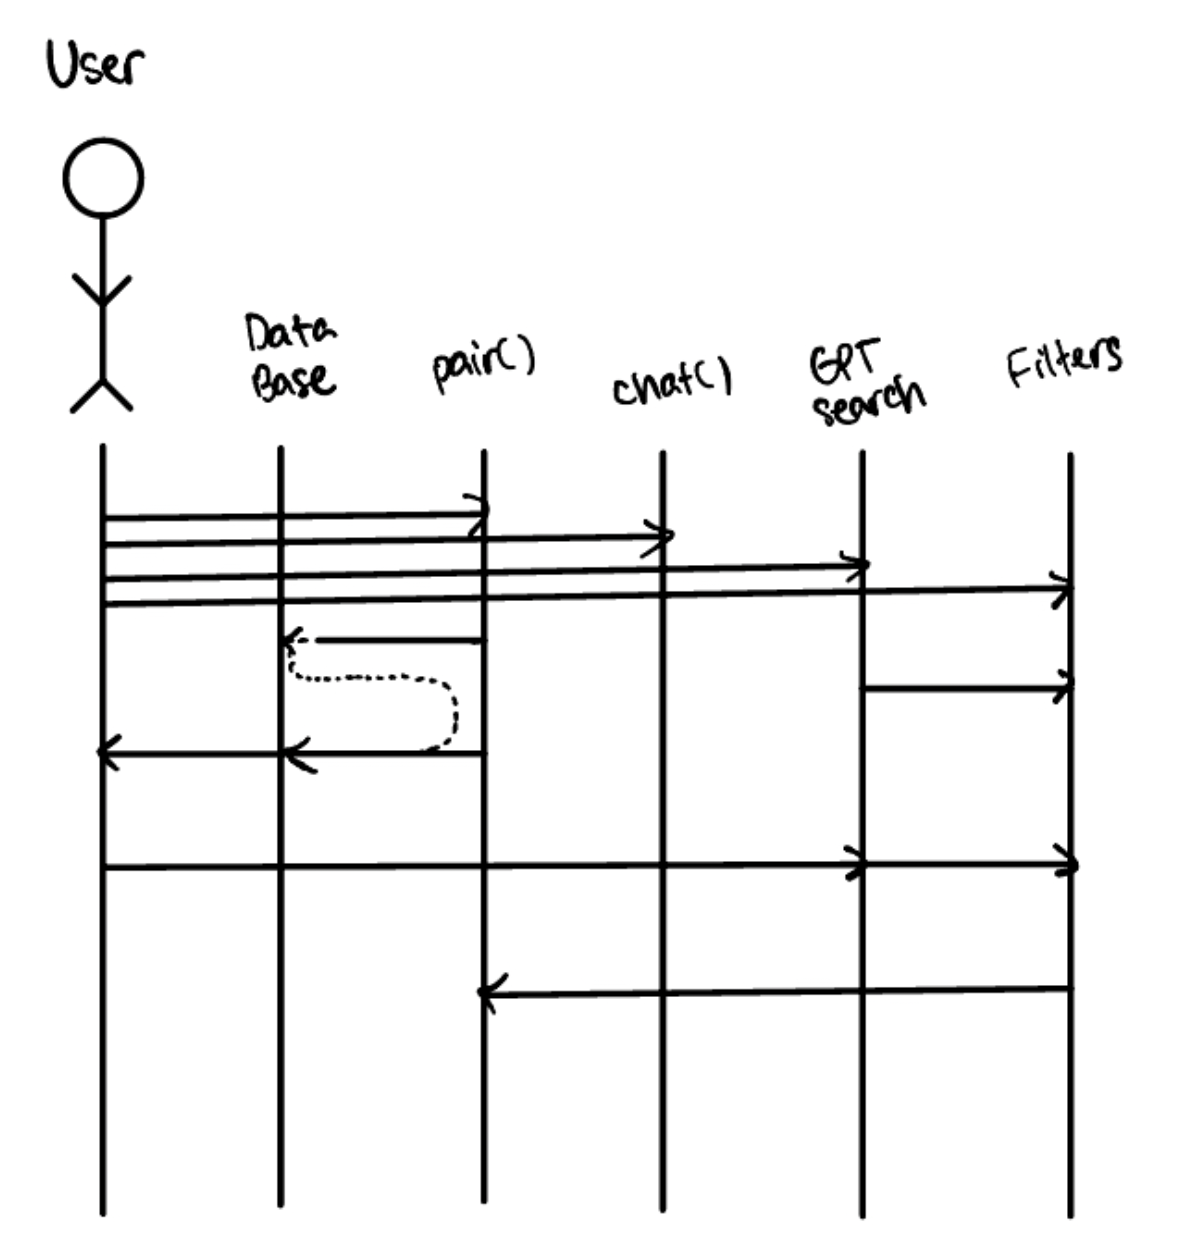 User
Data
Base
pair()
chat()
GPT
search
Filters